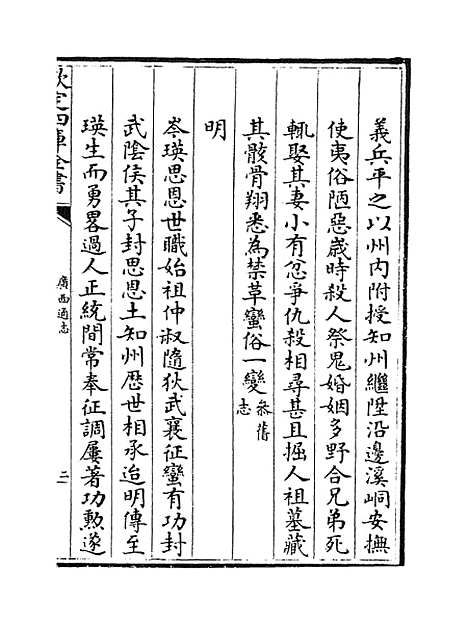 義兵平之以州内附授知州繼陞沿邊溪峒安撫
使夷俗陋惡歳時殺人祭鬼婚姻多野合兄弟死
輒娶其妻小有忿爭仇殺相尋甚且掘人祖墓藏
其骸骨翔悉為禁草蠻俗一變叅舊志
明
岑瑛思恩世職始祖仲淑隨狄武襄征蠻有功封
武陰侯其子封思恩土知州歴世相承迨明傳至
瑛生而勇畧過人正統間常奉征調屢著功勲遂
欽定四庫全書
廣西通志
二